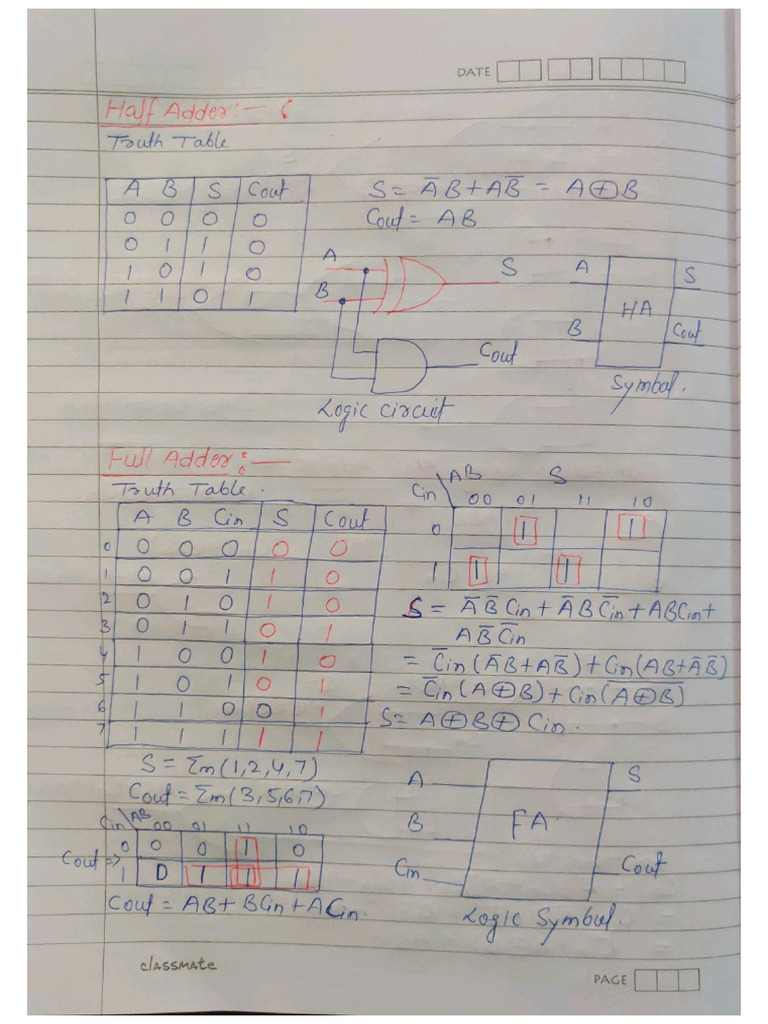 DATE
Half Adder:-
Truth Table
A B S Cout
0 0 0 0
0 1 1 0
1 0 1 0
1 1 0 1
S = A̅B + AB̅ = A⊕B
Cout = AB
A
B
S
Cout
Logic circuit
A
B
HA
S
Cout
Symbol.
Full Adder:-
Truth Table.
A B Cin S Cout
0 0 0 0 0 0
1 0 0 1 1 0
2 0 1 0 1 0
3 0 1 1 0 1
4 1 0 0 1 0
5 1 0 1 0 1
6 1 1 0 0 1
7 1 1 1 1 1
S = Σm(1,2,4,7)
Cout = Σm(3,5,6,7)
Cin \ AB S
00 01 11 10
0 1 1
1 1 1
S = A̅ B̅ Cin + A̅ B C̅in + ABCin +
A B̅ C̅in
= C̅in (A̅B + AB̅) + Cin (AB + A̅B̅)
= C̅in (A⊕B) + Cin (A⊕B)̅
S = A⊕B⊕Cin.
Cin \ AB 00 01 11 10
Cout =>
0 0 0 1 0
1 0 1 1 1
Cout = AB + BCin + ACin.
A
B
Cin
FA
S
Cout
Logic Symbol.
classmate
PAGE